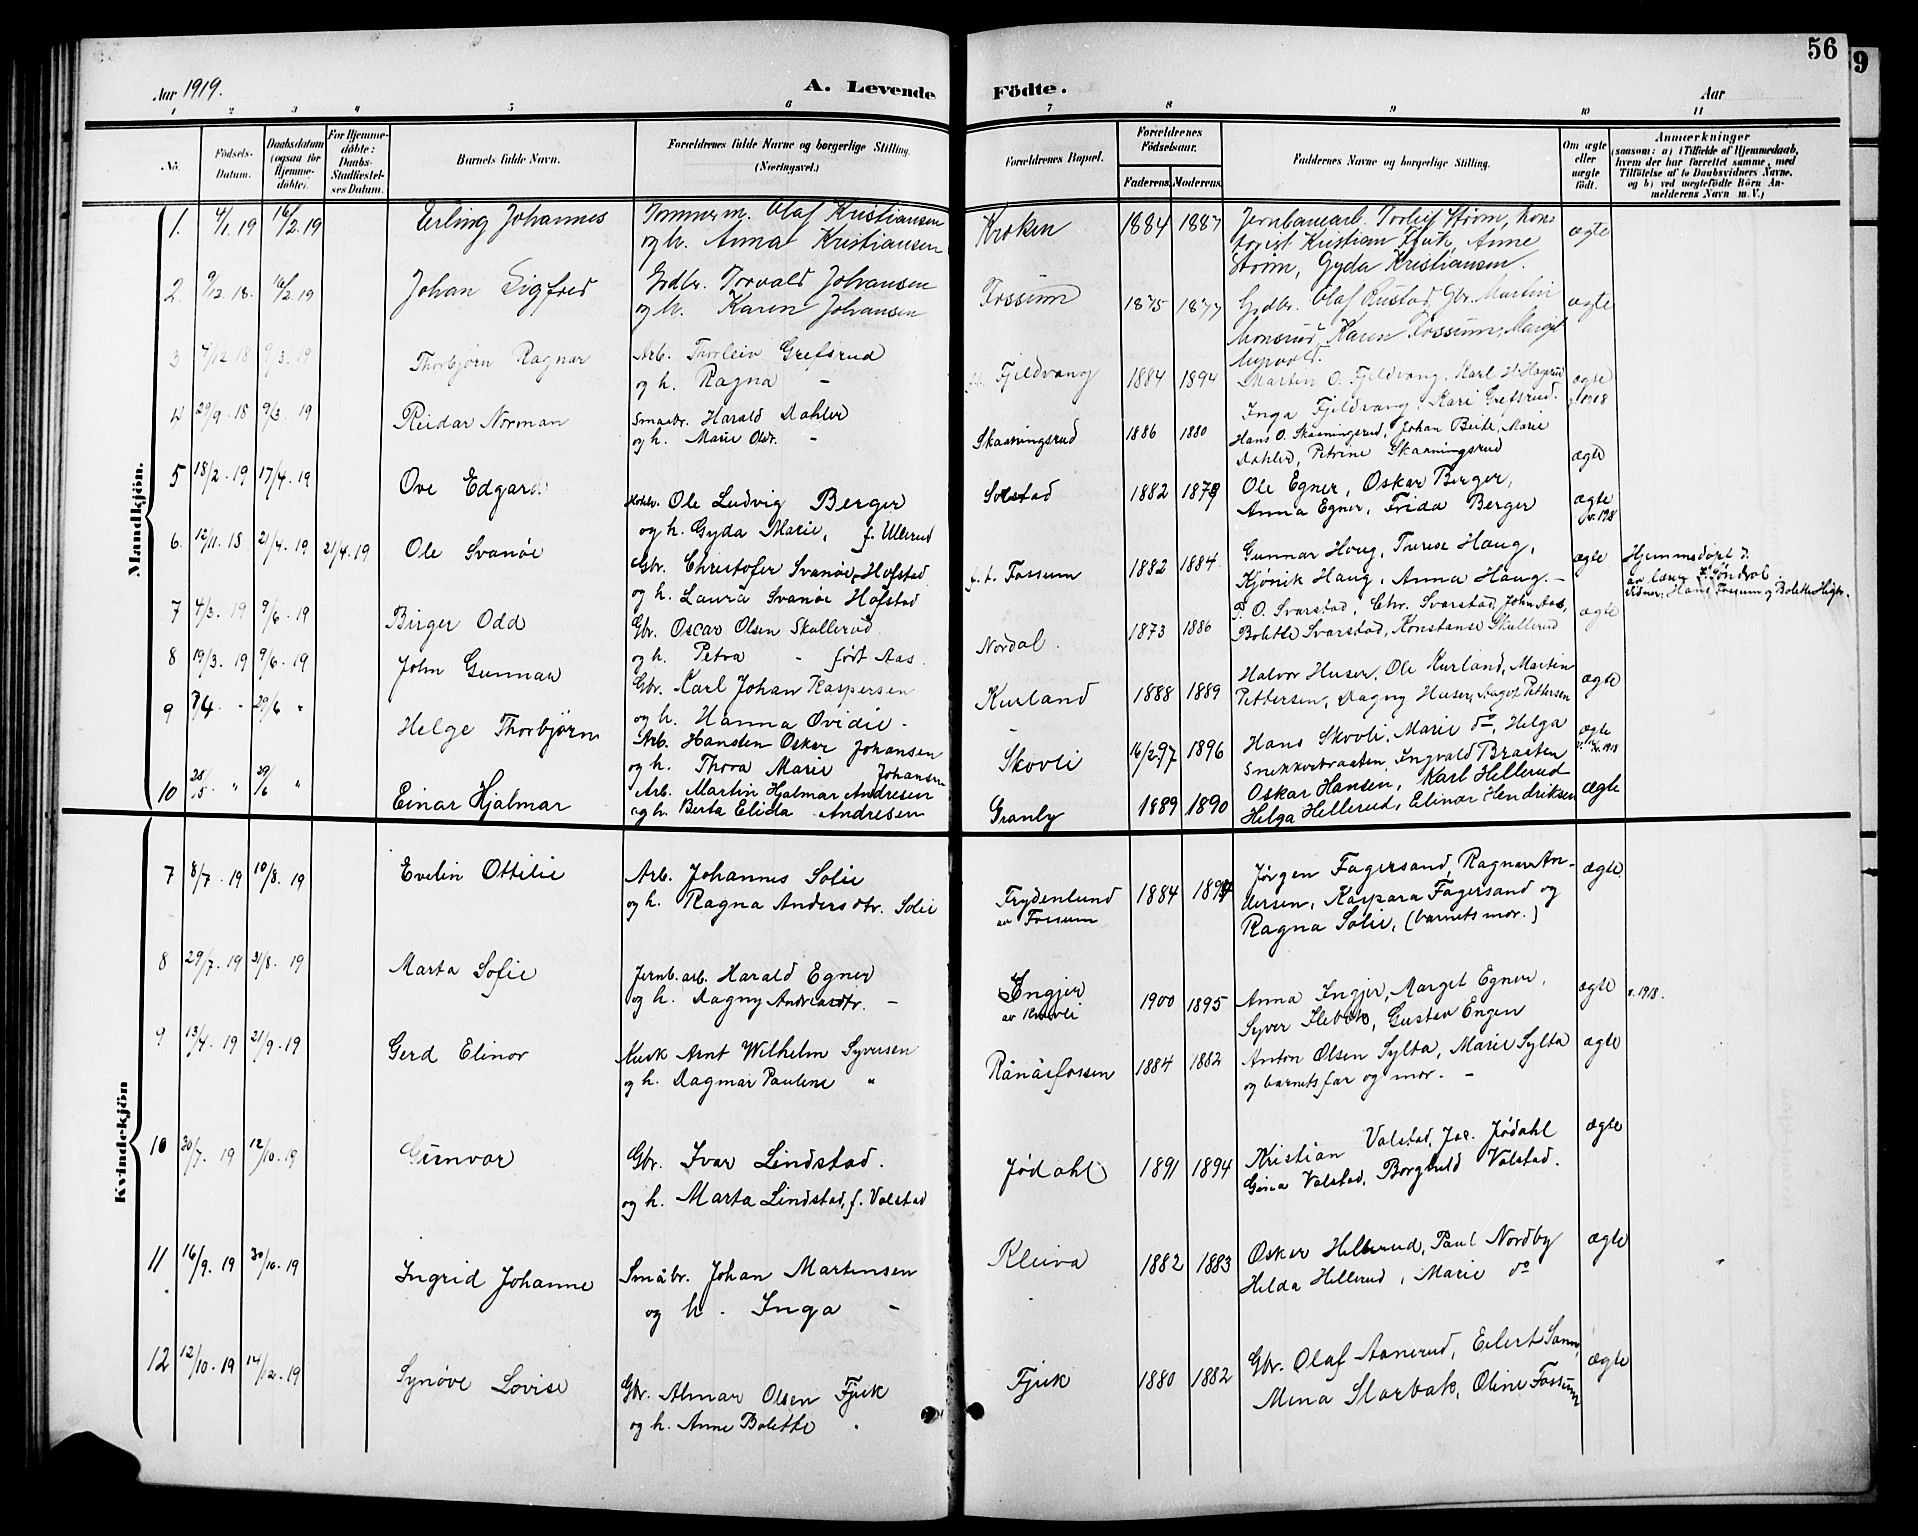 56
9
Aar 1919.
A. Levende Födte.
Aar
1 2 3 4 5 6 7 8 9 10 11
No.
Födsels-Datum.
Daabsdatum (ogsaa for Hjemme-döbte).
For Hjemme-döbte: Daabs-Stadfæstel-ses Datum.
Barnets fulde Navn.
Forældrenes fulde Navne og borgerlige Stilling (Næringsvei.)
Forældrenes Bopæl.
Forældrenes Födselsaar.
Faderens. Moderens.
Faddernes Navne og borgerlige Stilling.
Om ægte eller uægte født.
Anmærkninger
(saasom: a) i Tilfælde af Hjemmedaab, hvem der har forrettet samme, med Tilföielse af to Daabsvidners Navne. og b) ved uægtefödte Börn An-melderens Navn m. V.)
Mandkjön.
1. 4/1. 19 16/2. 19 Erling Johannes Tømmerm. Olaf Kristiansen Kroken 1884 1887 Jernbanearb. Torleif Strøm, kon-
og h. Anna Kristiansen torist Kristian Fjuk, Anne ægte
Strøm, Gyda Kristiansen.
2. 9/12. 18. 16/2. 19 Johan Sigfred Grdbr. Torvald Johansen Fossum 1875 1877 Grdbr. Olaf Rustad, Gbr. Martin ægte
og h. Karen Johansen Karen Fossum, Margit
3 7/12 18 9/3. 19 Thorbjørn Ragnar Arb. Thorleiv Grefsrud Fjeldvang 1884 1894 Marten O. Fjeldvang, Karl H. ægte
og h. Ragna - Inga Fjeldvang. Kari Grefsrud. 1918
4 29/9. 18 9/3. 19 Reidar Norman Smaabr. Harald Dahler Skaaningsrud 1886 1880 Hans O. Skaaningsrud, Johan Beite, Marie
og h. Marie Olsdr. - Dahler, Petrine Skaaningsrud ægte
5 18/2. 19 17/4. 19 Ove Edgard Ole Ludvig Berger Solstad 1882 1879 Ole Egner, Oskar Berger,
og h. Gyda Marie, f. Ullerud Anna Egner, Frida Berger ægte
1918
6. 12/11. 18 21/4. 19 21/4. 19 Ole Svanøe Gbr. Christofer Svanøe Hofstad f. t. Fossum 1882 1884. Gunnar Haug, Therese Haug, ægte Hjemmedøpt
og h. Laura Svanøe Hofstad Kjønik Haug, Anna Haug. - av lærer
Hans Fossum og Bolette
7 4/3. 19 9/6. 19 Birger Odd Gbr. Oscar Olsen Skullerud Nordal. 1873 1886 P. O. Svarstad, Chr. Svarstad, John Aas, ægte
og h. Petra - født Aas. Bolette Svarstad, Konstanse Skullerud
8 19/3. 19 9/6. 19 John Gunnar Gbr. Karl Johan Kaspersen Kurland 1888 1889 Halvor Huser, Ole Kurland, Martin ægte
og h. Hanna Ovidie - Pettersen, Dagny Huser, Aagot Pettersen
9 8/4. " 29/6 " Helge Thorbjørn Arb. Hansten Oskar Johansen Skovli 16/2.97 1896 Hans Skovli, Marie do, Helga ægte
og h. Thora Marie Johansen Snekkerbraaten, Ingvald Braaten 1918
10 28/5. " 29/6 " Einar Hjalmar Arb. Martin Hjalmar Andresen Granly 1889 1890 Oskar Hansen, Karl Hellerud ægte
og h. Berta Elida Andresen Helga Hellerud, Elinor Hendriksen
Kvindekjön
7 8/7. 19 10/8. 19 Evelin Ottilie Arb. Johannes Solie Frydenlund 1884 1894 Jørgen Fagersand, Ragnar An- ægte.
og h. Ragna Andersdtr. Solie av Fossum dersen, Kaspara Fagersand og
Ragna Solie, (barnets mor.)
8 29/7. 19 31/8. 19 Marta Sofie Jernb. arb. Harald Egner Engjer 1900 1895 Anna Ingjer, Marget Egner, ægte v. 1918.
og h. Dagny Andreasdtr. - Syver Ilebek, Gustav Engen
9 13/4. 19 21/9. 19 Gerd Elinor Kusk Arnt Wilhelm Syversen Rånåsfossen 1884 1882 Anton Olsen Sylta, Marie Sylta ægte
og h. Dagmar Pauline " og barnets far og mor. -
10 30/7. 19 12/10. 19 Gunvor Gbr. Ivar Lindstad. Jødahl 1891 1894 Kristian Valstad, Jac. Jødahl ægte
og h. Marta Lindstad, f. Valstad Gina Valstad, Borghild Valstad.
11 16/9. 19 30/10. 19 Ingrid Johanne Småbr. Johan Martinsen Kleiva 1882 1883 Oskar Hellerud, Paul Nordby ægte
og h. Inga - Hilda Hellerud, Marie do
12 12/10. 19 14/12. 19 Synøve Lovise Gbr. Almar Olsen Fjuk Fjuk 1880 1882 Gbr. Olaf Aanerud, Eilert ægte
og h. Anne Bolette " Mina Storbak, Oline Fossum